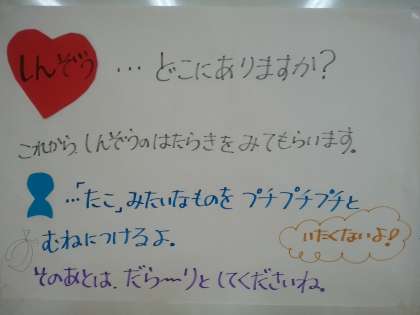 しんぞう …どこにありますか?
これから、しんぞうのはたらきをみてもらいます。
…「たこ」みたいなものを プチプチプチと
むねにつけるよ。
いたくないよ!
そのあとは、だら〜りとしてくださいね。